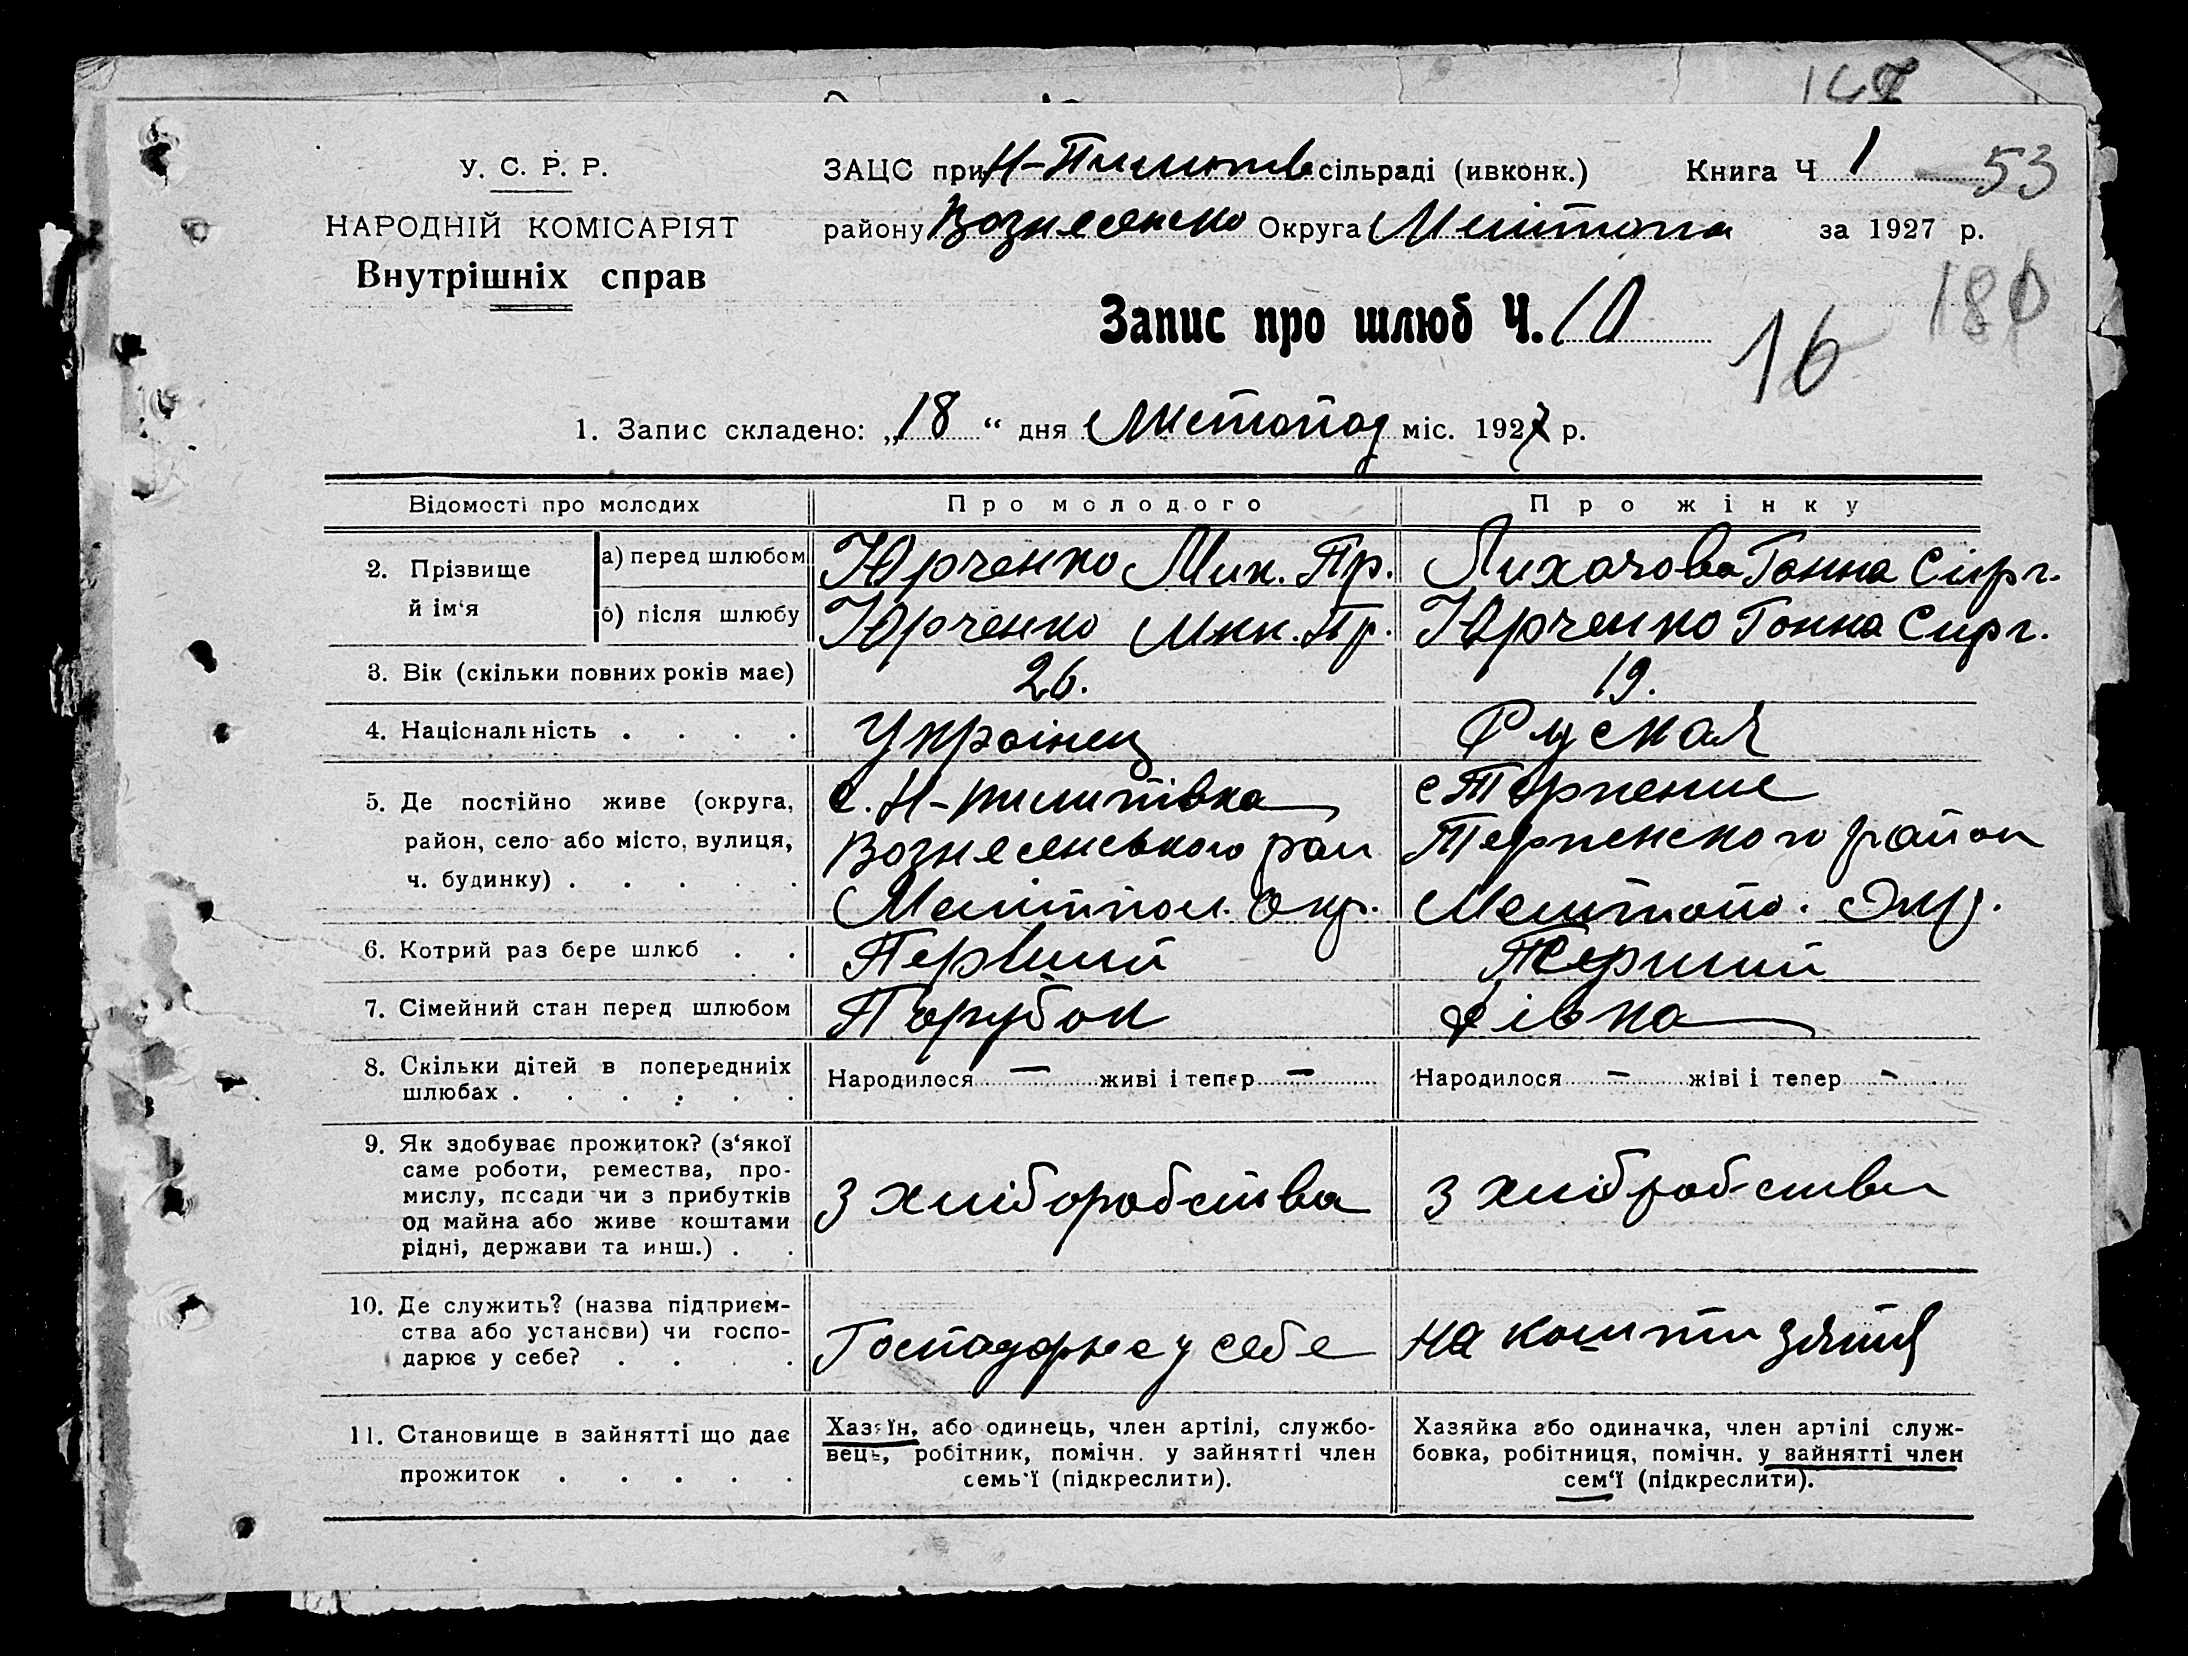 У. С. Р. Р.
НАРОДНІЙ КОМІСАРІЯТ
Внутрішніх справ
ЗАЦС при Н-Пилипів сільраді (ивконк.) Книга Ч 1 53
району Вознесенско Округа Мелітопа за 1927 р.
Запис про шлюб Ч. 10
16
1. Запис складено: „18“ дня Листопад міс. 1927 р.
Відомості про молодих Про молодого Про жінку
2. Прізвище й ім'я
а) перед шлюбом Юрченко Мик. Пр. Лихачова Ганна Сирг.
б) після шлюбу Юрченко Мик. Пр. Юрченко Ганна Сирг.
3. Вік (скільки повних років має) 26. 19.
4. Національність . . . . Украінец Руская
5. Де постійно живе (округа, с. Н-пилипівка с Терпение
район, село або місто, вулиця, Вознесенського рай Терпенского район
ч. будинку) . . . . . Мелітпол. Окр. Мелитопо. Окр.
6. Котрий раз бере шлюб . . Первший Перший
7. Сімейний стан перед шлюбом Парубок Дівка
8. Скільки дітей в попередниіх Народилося — живі і тепер — Народилося — жіві і тепер -
шлюбах . . . . . .
9. Як здобуває прожиток? (з'якої
саме роботи, ремества, про-
мислу, посади чи з прибутків З хліборобства З хлібробства
од майна або живе коштами
рідні, держави та инш.) . .
10. Де служить? (назва підприєм-
ства або установи) чи госпо- Господорює у себе на кошти зятя
дарює у себе? . . . .
11. Становище в зайнятті що дає Хазяїн, або одинець, член артілі, службо- Хазяйка або одиначка, член артілі служ-
прожиток . . . . . вець, робітник, помічн. у зайнятті член бовка, робітниця, помічн. у зайнятті член
семь'ї (підкреслити). сем'ї (підкреслити).